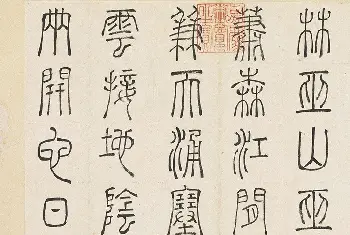 林巫山巫
蕭森江間
兼天涌塞
雲接地陰
兩開它日